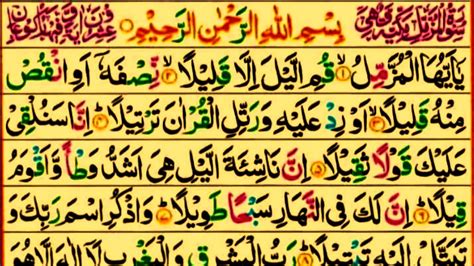 بِسْمِ اللهِ الرَّحْمٰنِ الرَّحِيْمِ
يٰۤاَيُّهَا الْمُزَّمِّلُ ۙ﴿۱﴾ قُمِ الَّيْلَ اِلَّا قَلِيْلًا ۙ﴿۲﴾ نِّصْفَهٗۤ اَوِ انْقُصْ
مِنْهُ قَلِيْلًا ۙ﴿۳﴾ اَوْ زِدْ عَلَيْهِ وَرَتِّلِ الْقُرْاٰنَ تَرْتِيْلًا ؕ﴿۴﴾ اِنَّا سَنُلْقِيْ
عَلَيْكَ قَوْلًا ثَقِيْلًا ﴿۵﴾ اِنَّ نَاشِئَةَ الَّيْلِ هِيَ اَشَدُّ وَطْاً وَّاَقْوَمُ
قِيْلًا ؕ﴿۶﴾ اِنَّ لَكَ فِي النَّهَارِ سَبْحًا طَوِيْلًا ؕ﴿۷﴾ وَاذْكُرِ اسْمَ رَبِّكَ وَ
تَبَتَّلْ اِلَيْهِ تَبْتِيْلًا ؕ﴿۸﴾ رَبُّ الْمَشْرِقِ وَالْمَغْرِبِ لَاۤ اِلٰهَ اِلَّا هُوَ